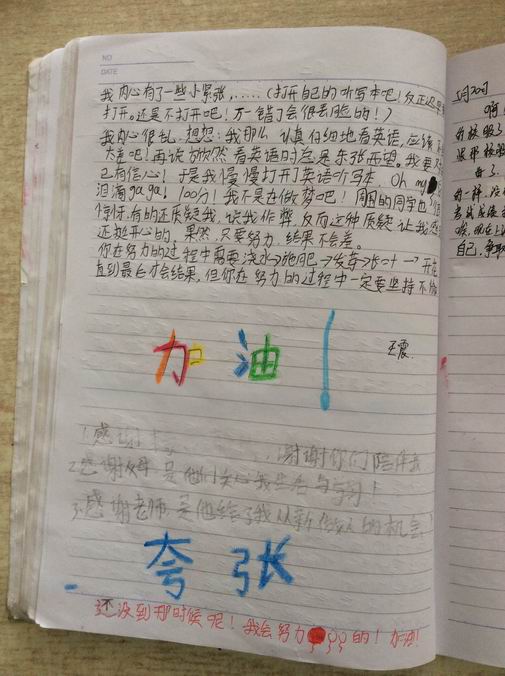 NO
DATE
我内心有了一些小紧张,……(打开自己的听写本吧!反正迟早
打开。还是不打开吧!万一错了会很丢脸的!)
我内心很乱,想想:我那么认真仔细地看英语,应该不
太差吧!再说欣然看英语时总是东张西望。我要对
己有信心!于是我慢慢打开英语听写本,Oh my
泪满gaga,100分!我不是在做梦吧!周围的同学也
惊讶,有的还质疑我,说我作弊,反而这种质疑让我感
还挺开心的,果然,只要努力,结果不会差。
你在努力的过程中需要:浇水→施肥→发芽→长叶→开花
直到最后才会结果,但你在努力的过程中一定要坚持不懈
王震.
加油!
1.感谢 谢谢你们陪伴我
2.感谢父母,是他们关心我生活与学习!
3.感谢老师,是他给了我从新做人的机会!
夸张
还没到那时候呢!我会努力的!加油!
5月20日
自己,争取